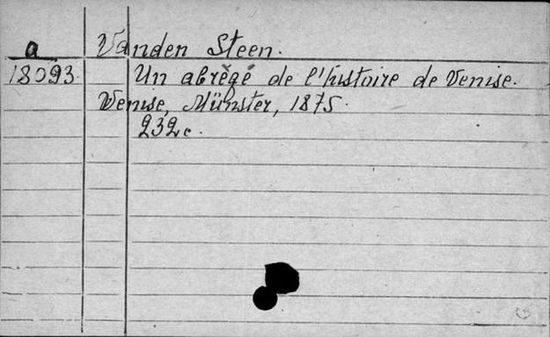 a Vanden Steen.
18093. Un abrégé de l'histoire de Venise.
Venise, Münster, 1875.
232 c.